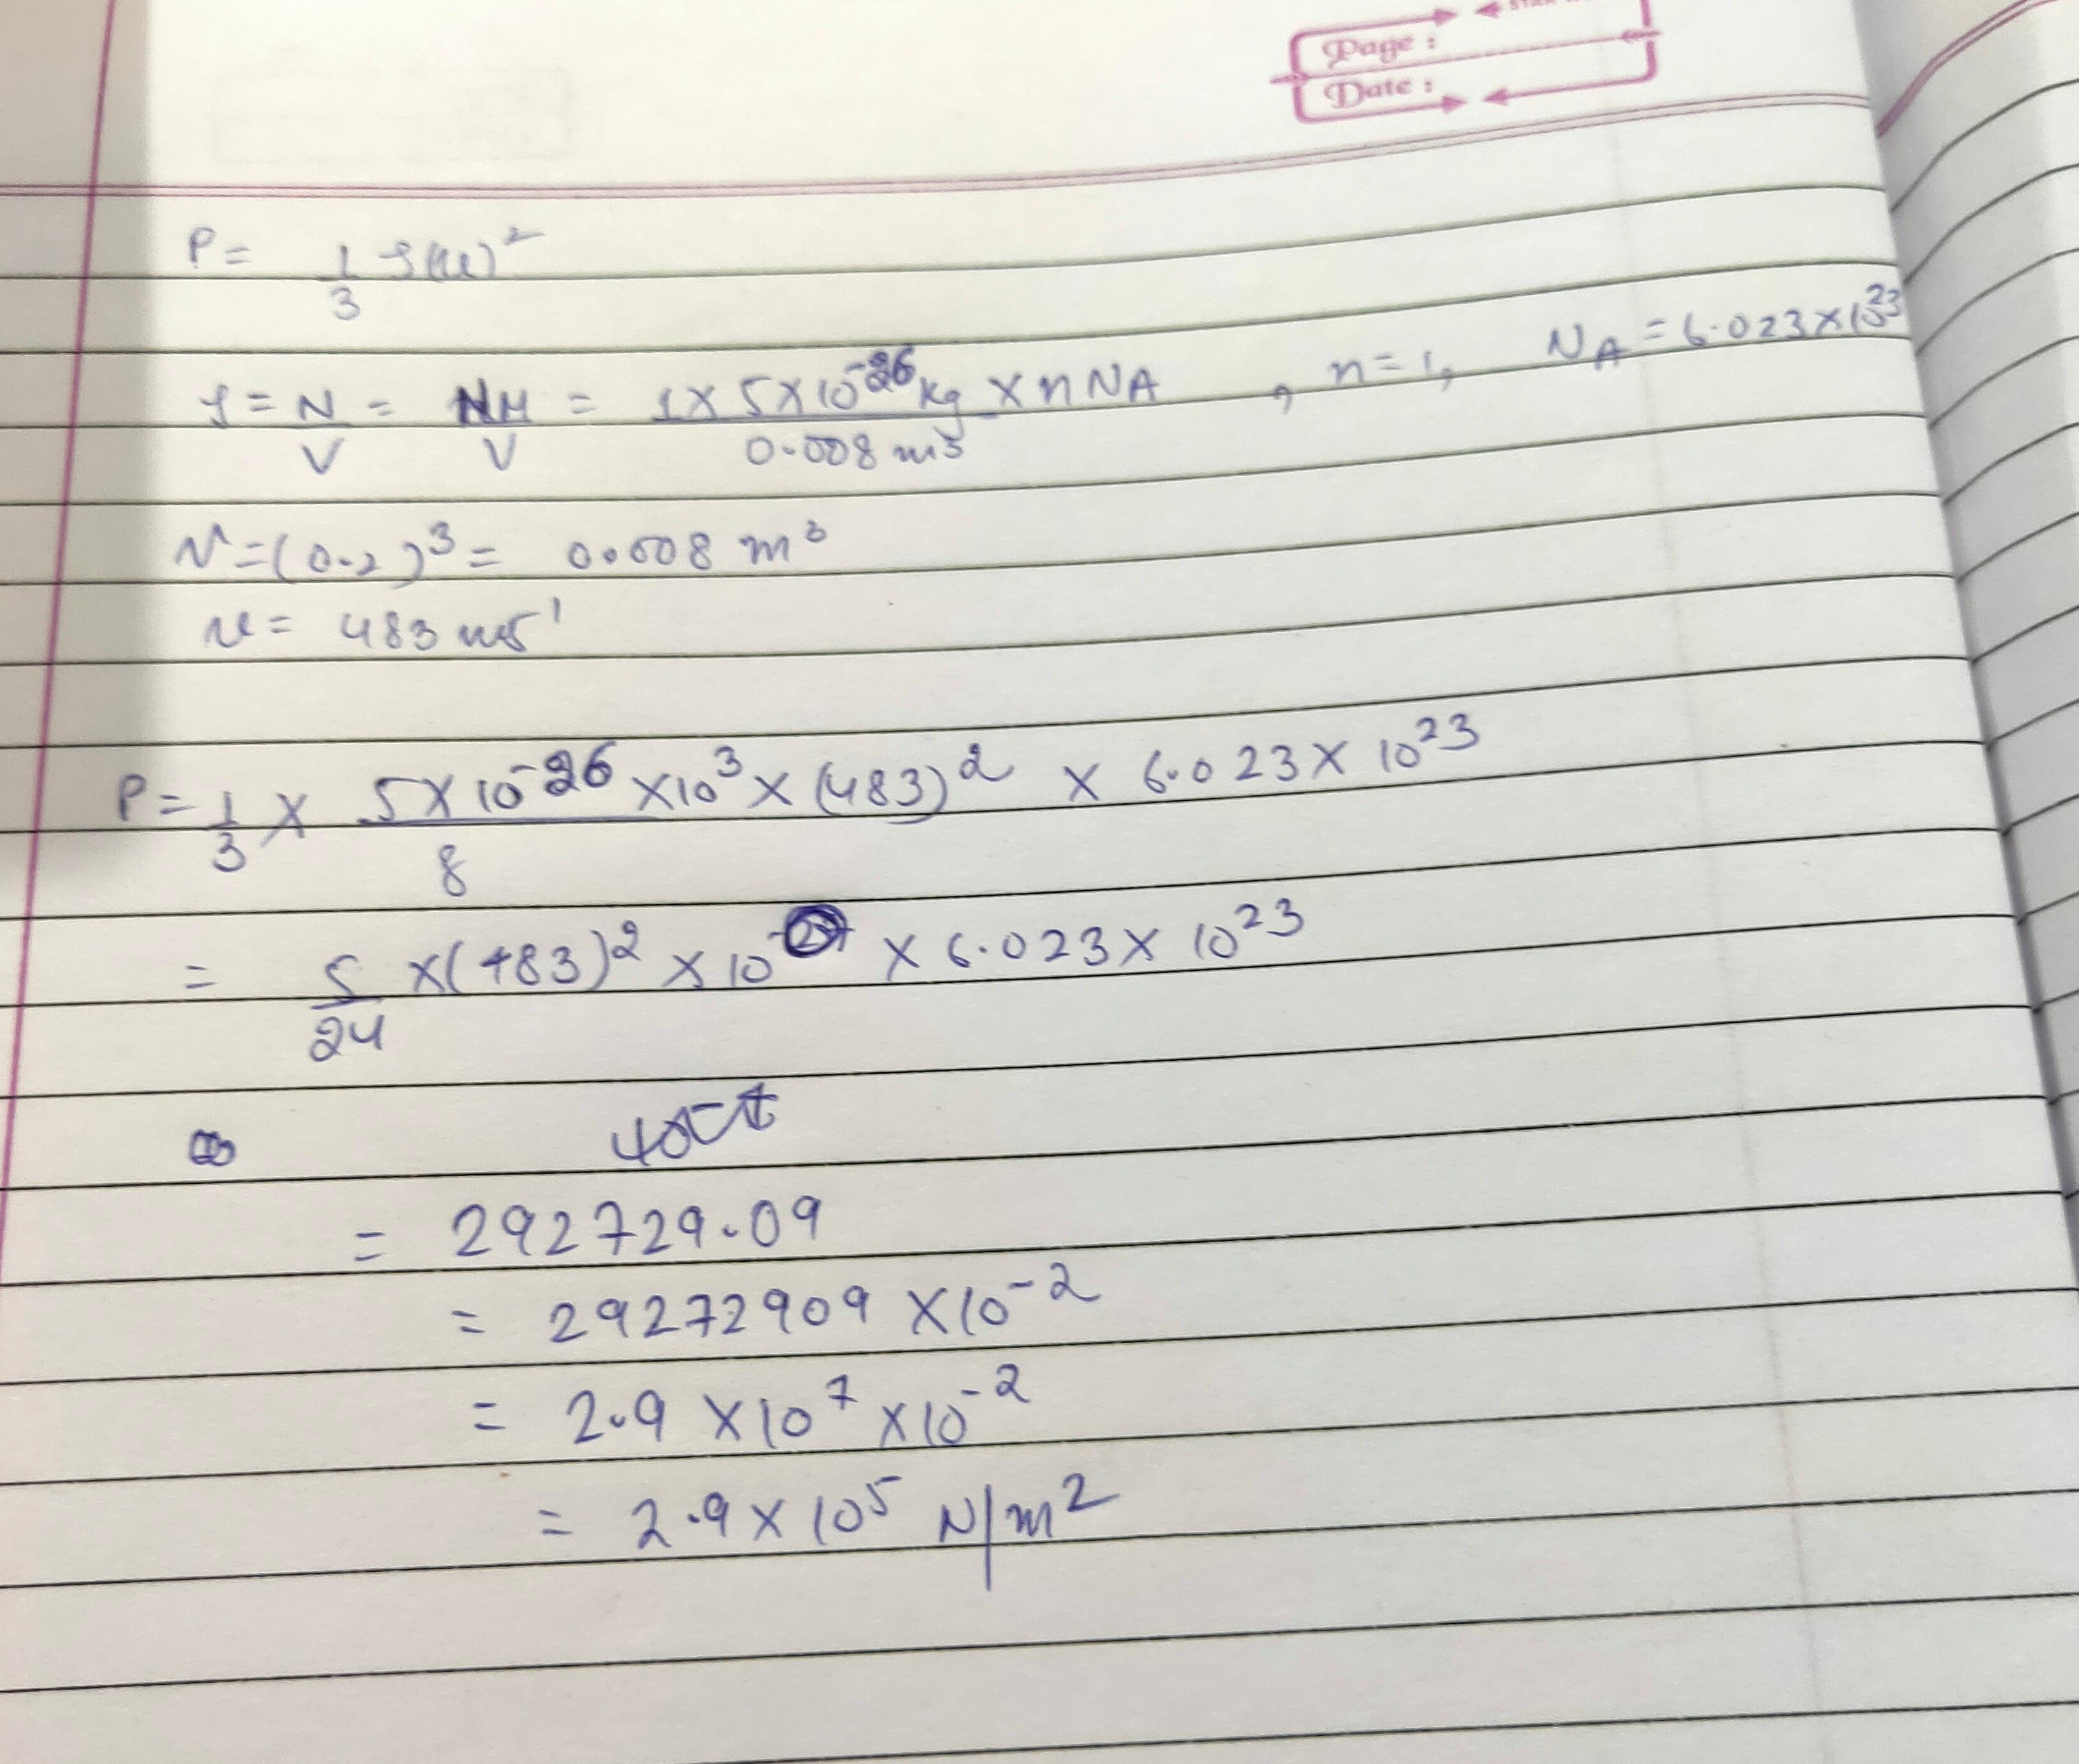 Page :
Date :
P = 1/3 ρ(u)²
ρ = N/V = NM/V = 1 × 5 × 10⁻²⁶ kg × n NA / 0.008 m³ , n = 1, NA = 6.023 × 10²³
V = (0.2)³ = 0.008 m³
u = 483 ms⁻¹
P = 1/3 × 5 × 10⁻²⁶ × 10³ × (483)² / 8 × 6.023 × 10²³
= 5/24 × (483)² × 10 × 6.023 × 10²³
= 292729.09
= 29272909 × 10⁻²
= 2.9 × 10⁷ × 10⁻²
= 2.9 × 10⁵ N/m²